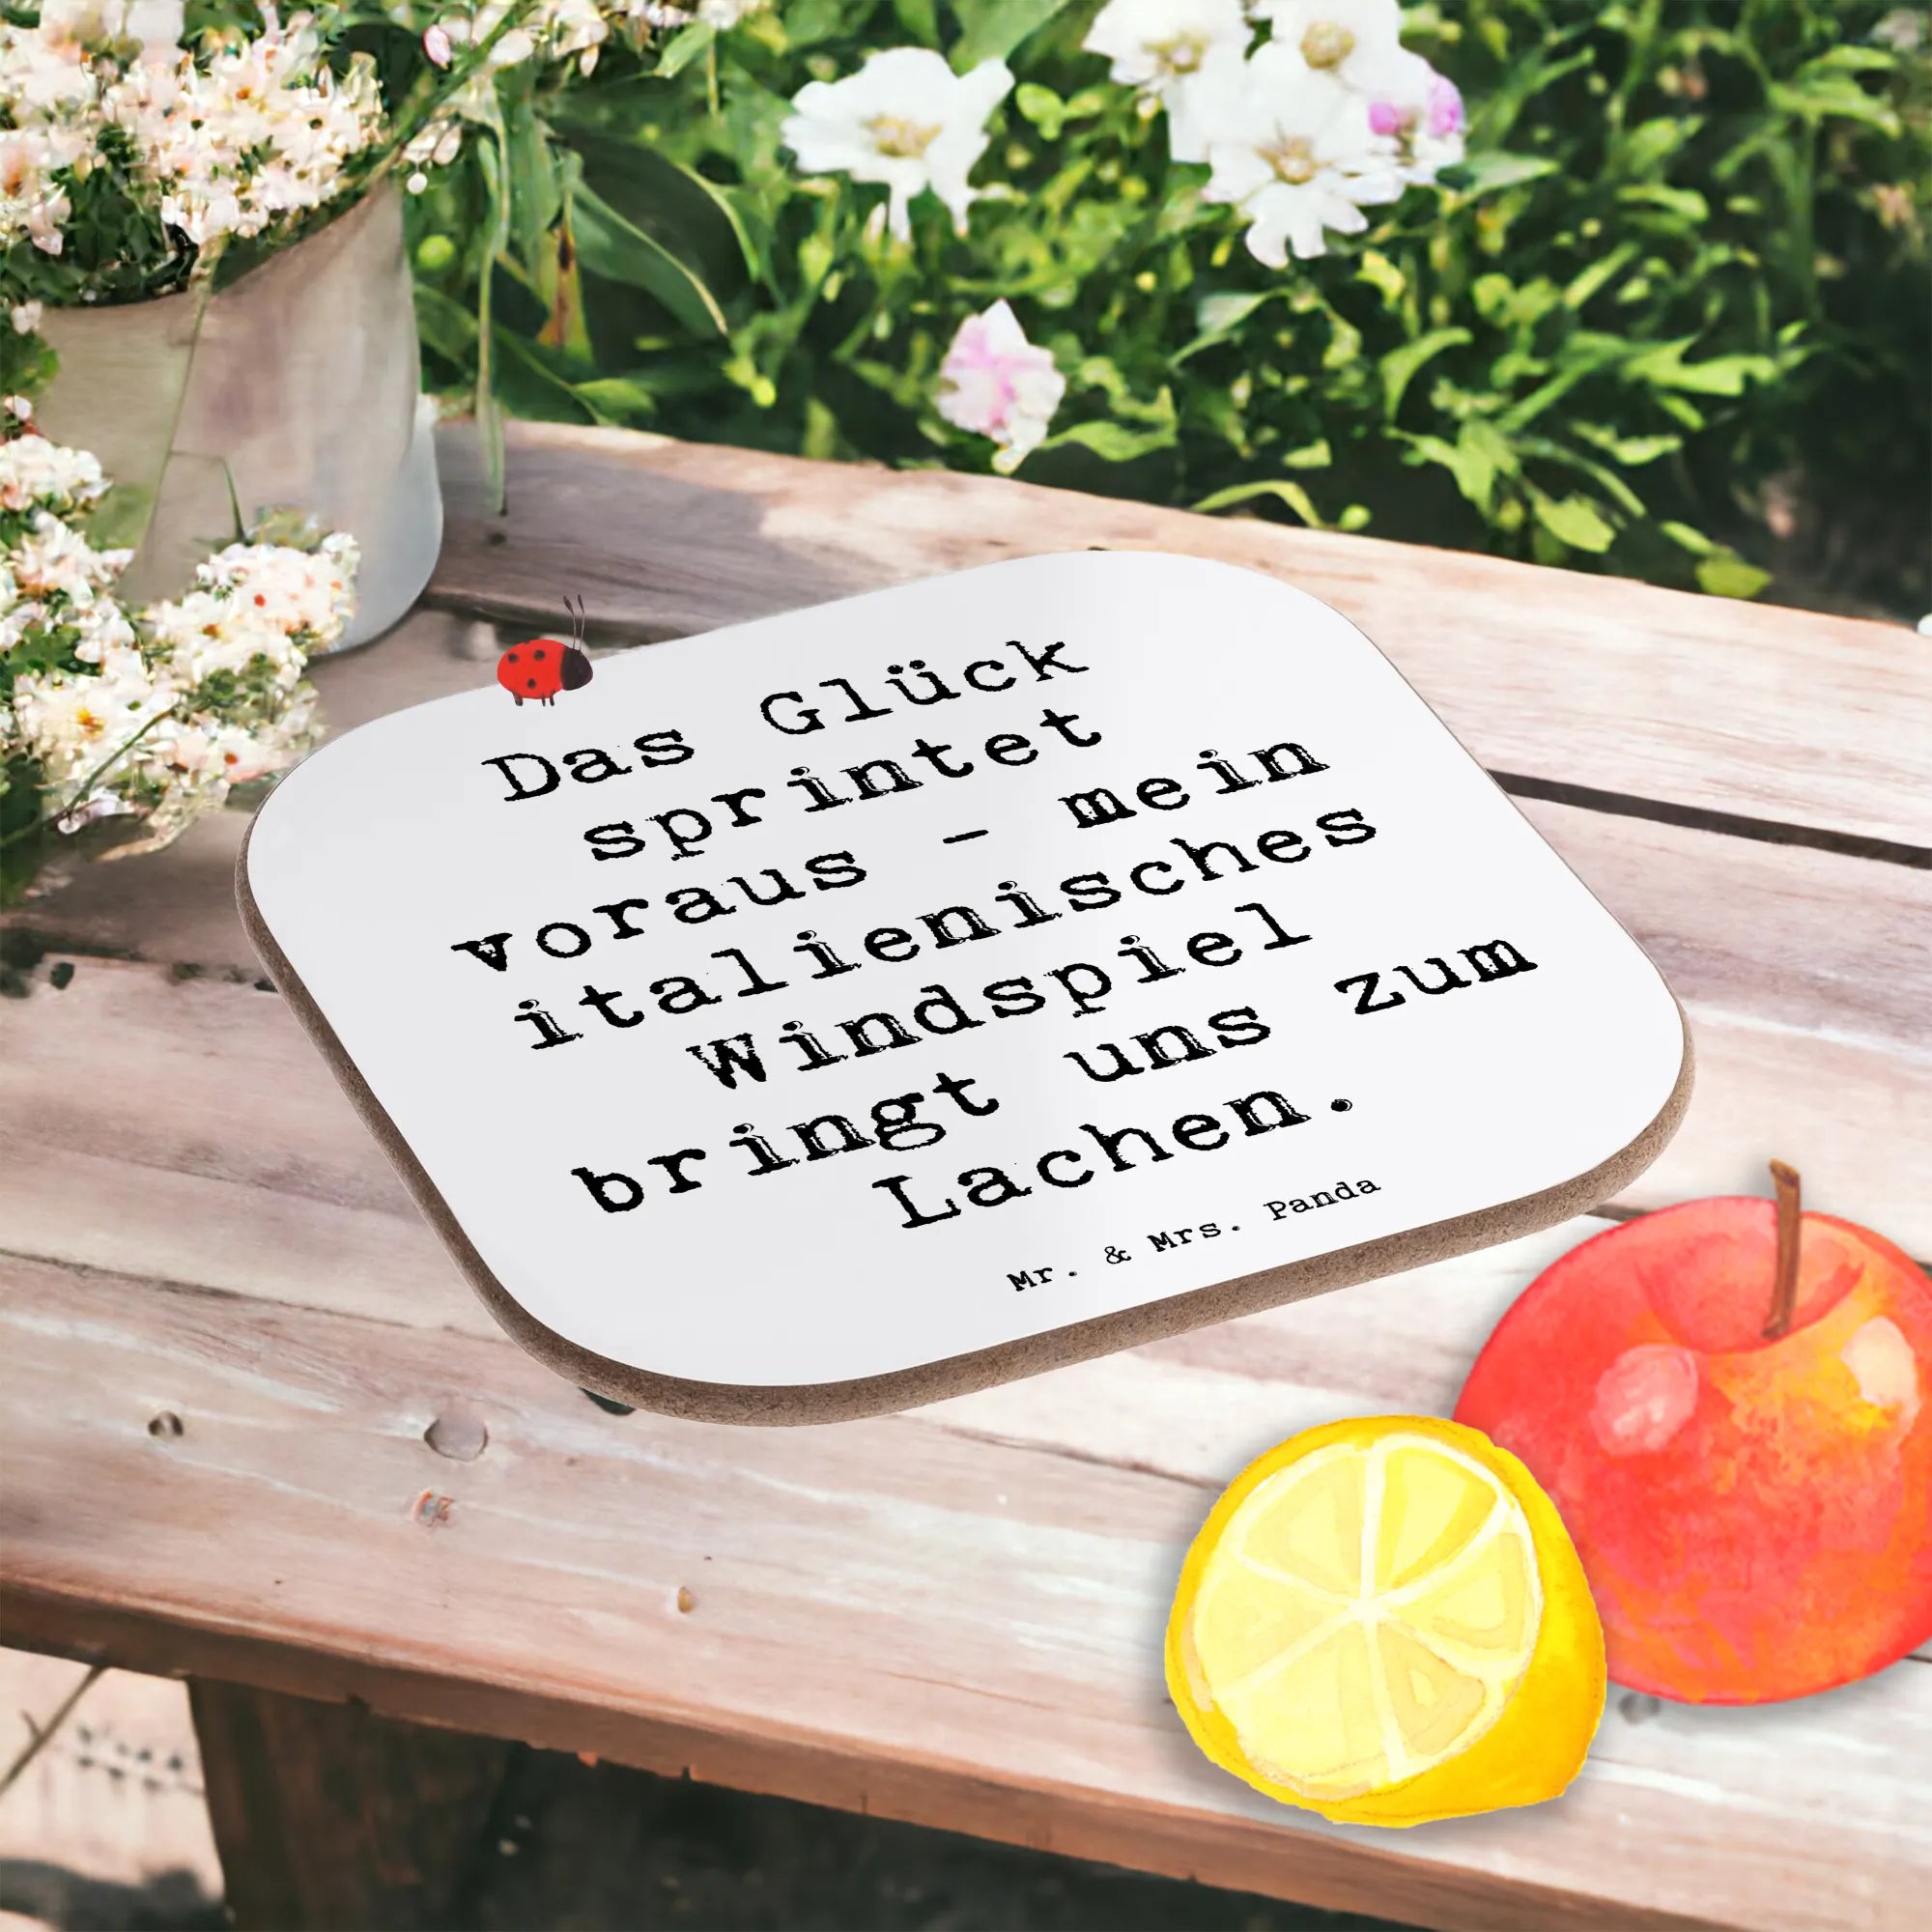 Das Glück
sprintet
voraus - mein
italienisches
Windspiel
bringt uns zum
Lachen.
Mr. & Mrs. Panda